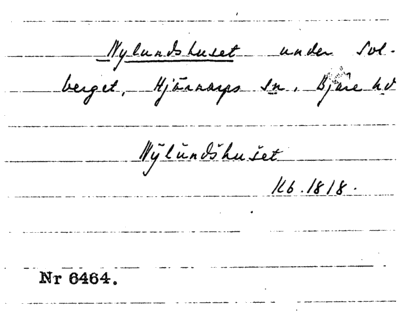 Nylundshuset under Sol-
berget, Hjärnarps sn, Bjäre hd
Nÿlŭndŝhuŝet
Hb. 1818.
Nr 6464.